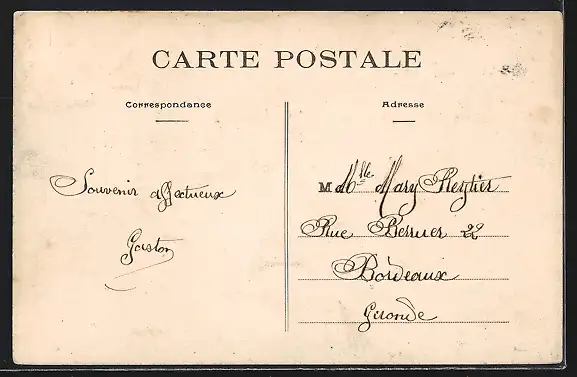 CARTE POSTALE
Correspondance
Adresse
Souvenir affectueux
Gaston
M Mlle Mary Pleytier
Rue Berruer 22
Bordeaux
Gironde